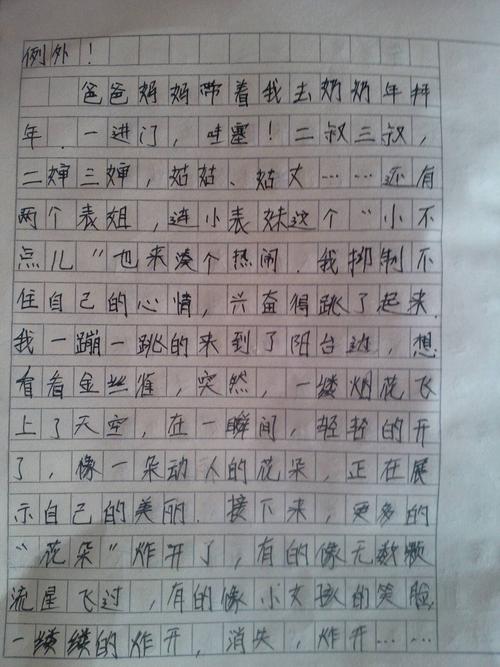 例外！
爸爸妈妈带着我去奶奶年拜
年．一进门，哇塞！二叔三叔，
二婶三婶，姑姑、姑丈……还有
两个表姐，连小表妹这个“小不
点儿”也来凑个热闹．我抑制不
住自己的心情，兴奋得跳了起来．
我一蹦一跳的来到了阳台边，想
看看金丝雀，突然，一缕烟花飞
上了天空，在一瞬间，轻轻的开
了，像一朵动人的花朵，正在展
示自己的美丽．接下来，更多的
“花朵”炸开了，有的像无数颗
流星飞过，有的像小女孩的笑脸，
一缕缕的炸开，消失，炸开……